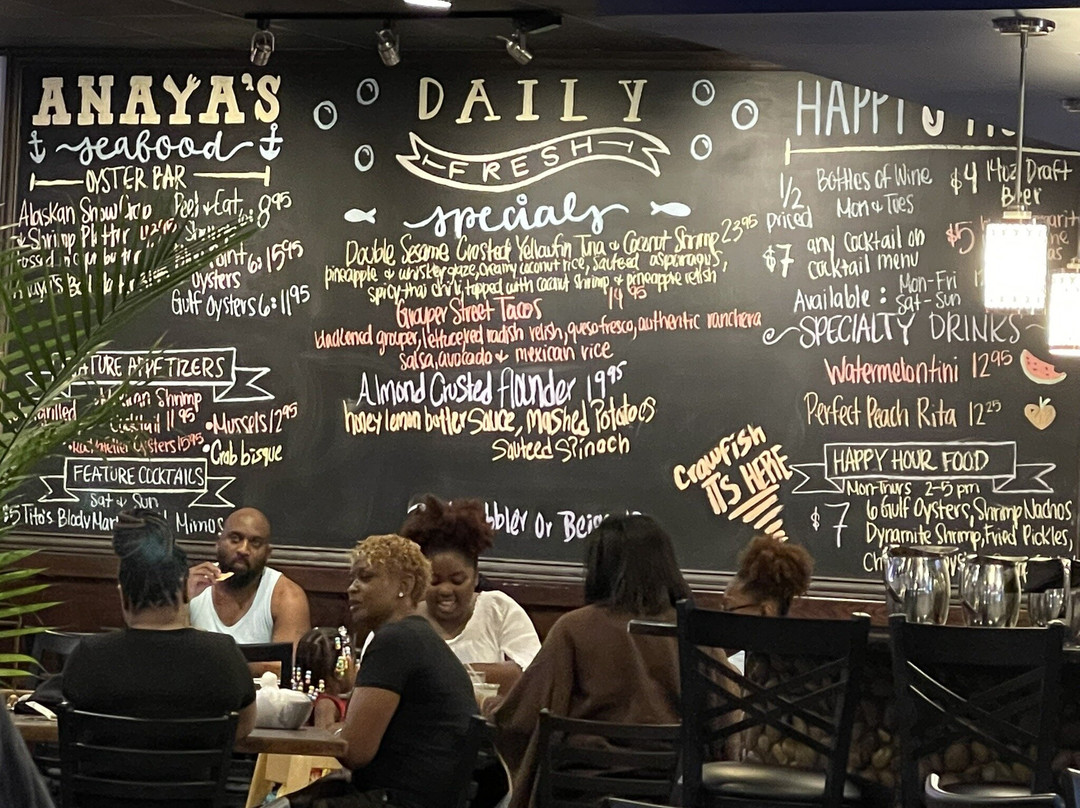 ANAYA'S
seafood
OYSTER BAR
Alaskan Snow Crab
& Shrimp Platter
Peel & Eat
8.95
Oysters 6: 15.95
Gulf Oysters 6: 11.95
FEATURE APPETIZERS
Shrimp
Cocktail 11.95
• Mussels 12.95
Oysters 15.95
• Crab bisque
FEATURE COCKTAILS
Sat & Sun
Tito's Bloody Mary
DAILY
FRESH
specials
Double Sesame Crusted Yellowfin Tuna & Coconut Shrimp 23.95
pineapple & whiskey glaze, creamy coconut rice, sauteed asparagus,
spicy thai chili, topped with coconut shrimp & pineapple relish
Grouper Street Tacos 14.95
blackened grouper, lettuce, red radish relish, queso fresco, authentic ranchera
salsa, avocado & mexican rice
Almond Crusted flounder 19.95
honey lemon butter sauce, mashed Potatoes
Sauteed Spinach
Or
Crawfish
IT'S HERE
HAPPY
1/2 priced
Bottles of Wine
Mon & Tues
$7 any cocktail on
cocktail menu
Available: Mon-Fri
Sat-Sun
$4 14oz Draft
Beer
$5
SPECIALTY DRINKS
Watermelontini 12.95
Perfect Peach Rita 12.25
HAPPY HOUR FOOD
Mon-Thurs 2-5 pm
$7
6 Gulf Oysters, Shrimp Nachos
Dynamite Shrimp, Fried Pickles,